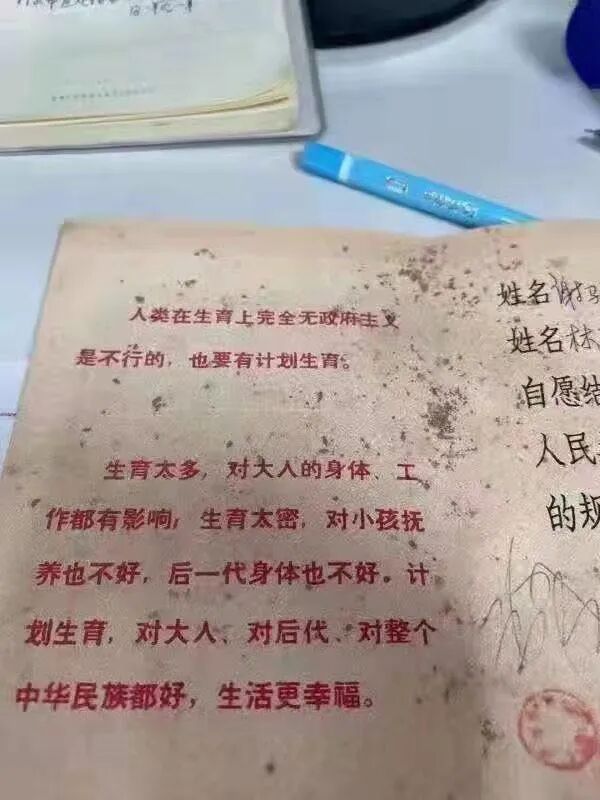 人类在生育上完全无政府主义
是不行的，也要有计划生育。
生育太多，对大人的身体、工
作都有影响；生育太密，对小孩抚
养也不好，后一代身体也不好。计
划生育，对大人、对后代、对整个
中华民族都好，生活更幸福。
姓名谢
姓名林
自愿结
人民
的规